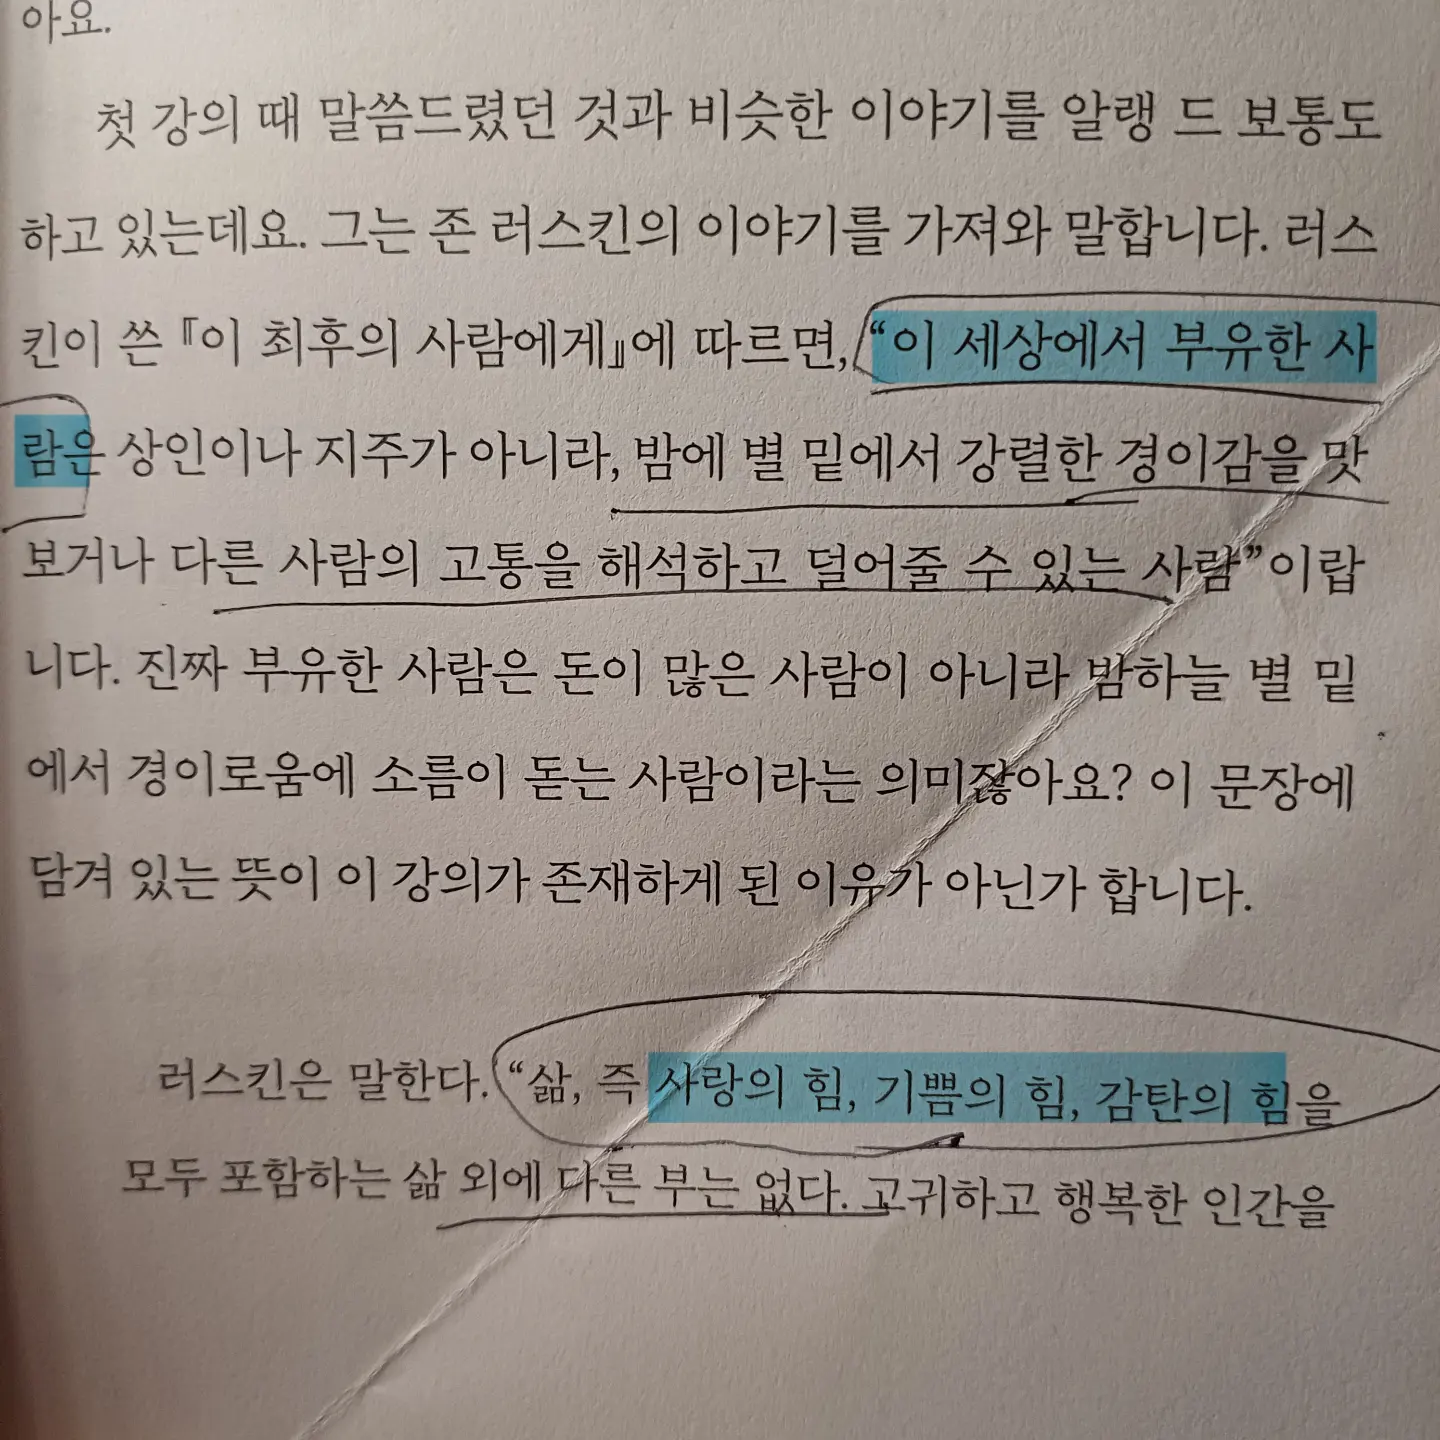 아요.
첫 강의 때 말씀드렸던 것과 비슷한 이야기를 알랭 드 보통도
하고 있는데요. 그는 존 러스킨의 이야기를 가져와 말합니다. 러스
킨이 쓴 『이 최후의 사람에게』에 따르면, “이 세상에서 부유한 사
람은 상인이나 지주가 아니라, 밤에 별 밑에서 강렬한 경이감을 맛
보거나 다른 사람의 고통을 해석하고 덜어줄 수 있는 사람”이랍
니다. 진짜 부유한 사람은 돈이 많은 사람이 아니라 밤하늘 별 밑
에서 경이로움에 소름이 돋는 사람이라는 의미잖아요? 이 문장에
담겨 있는 뜻이 이 강의가 존재하게 된 이유가 아닌가 합니다.
러스킨은 말한다. “삶, 즉 사랑의 힘, 기쁨의 힘, 감탄의 힘을
모두 포함하는 삶 외에 다른 부는 없다. 고귀하고 행복한 인간을